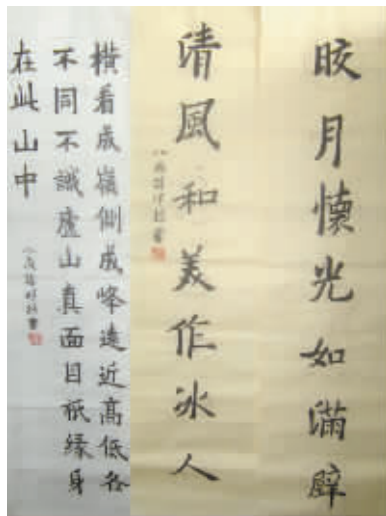 皎月懷光如滿璧
清風和美作冰人
橫看成嶺側成峰遠近高低各
不同不識廬山真面目祇緣身
在此山中